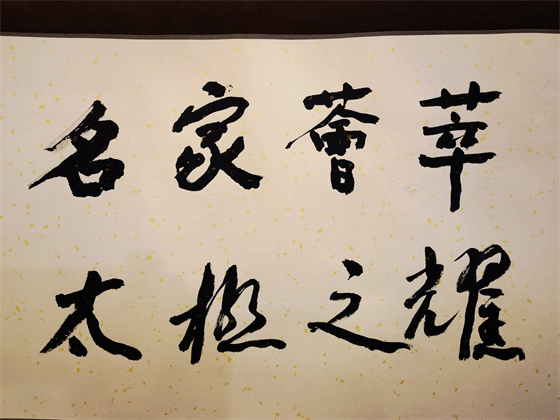 名家荟萃
太极之耀